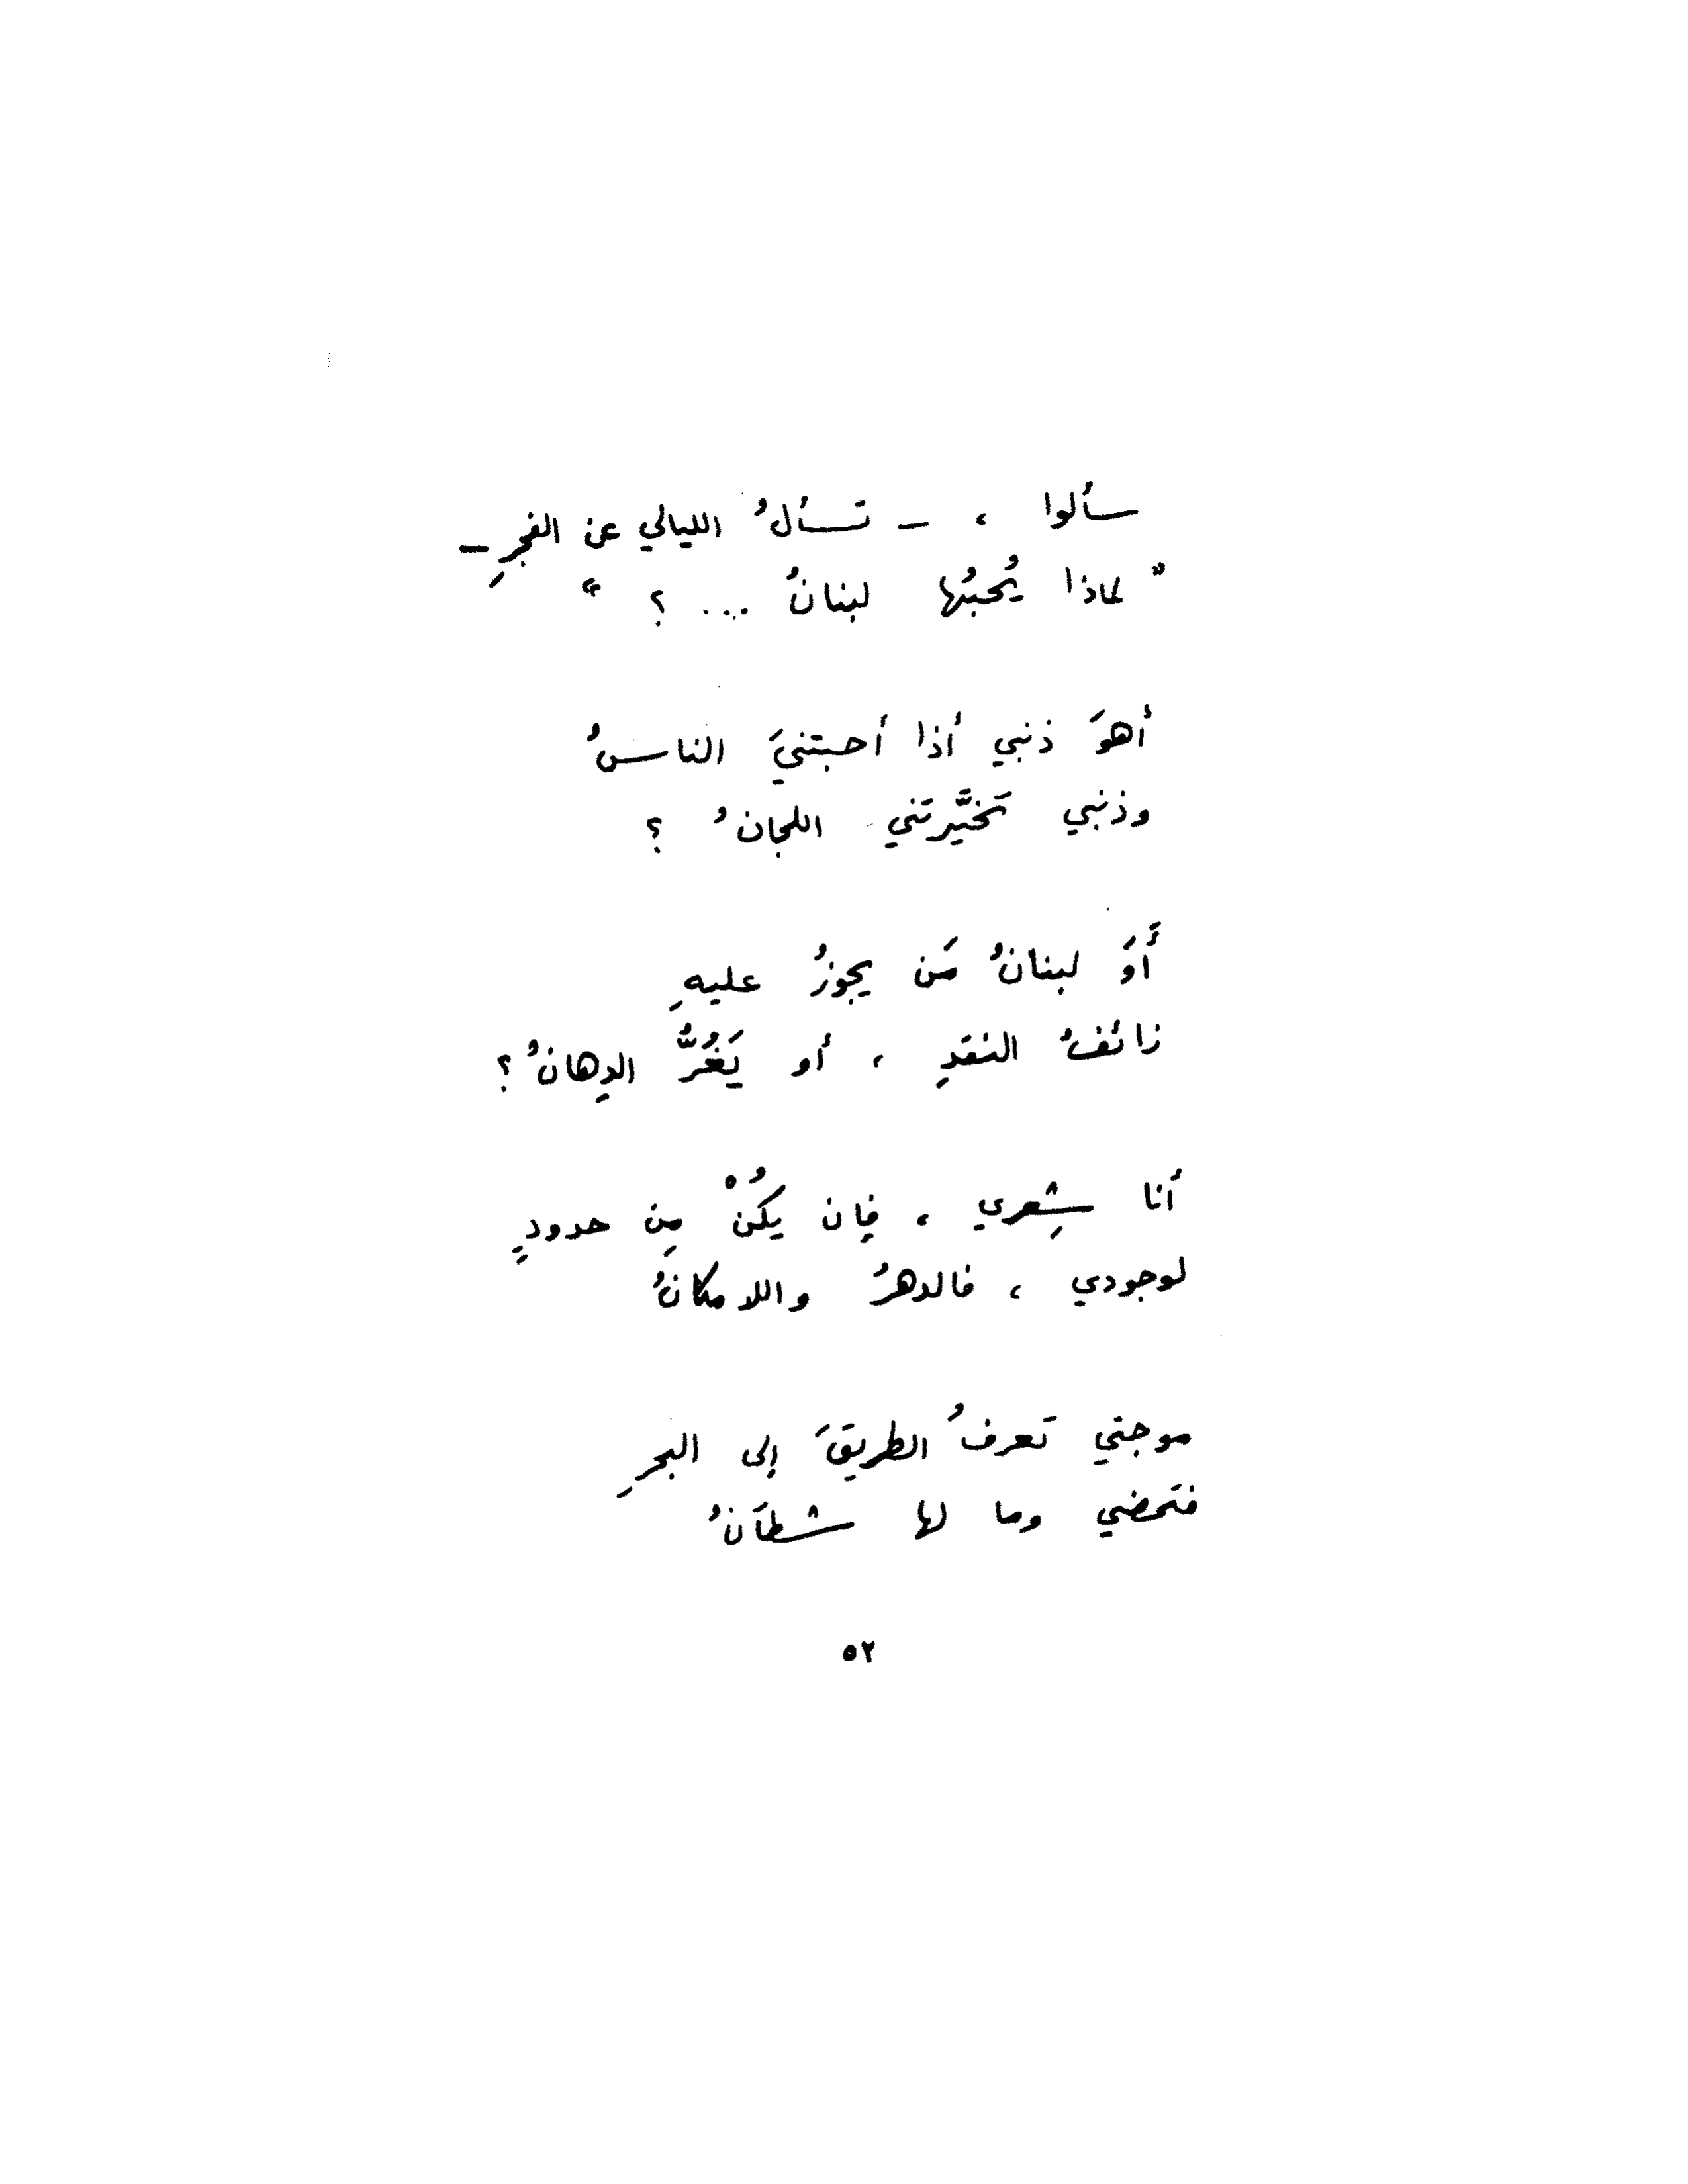 سألوا ، – تسألُ الليالي عن الفجرِ –
" لماذا يُحبُها لبنانُ ... ؟ "
أهوَ ذنبي أذا أحبتنيَ الناسُ
وذنبي تَخيَّرتَني اللجانُ ؟
أَوَ لبنانُ مَن يجوزُ عليهِ
زائفُ النقدِ ، أو يَغُرُّ الدِهانُ ؟
أنا شِعري ، فإن يكُنْ مِن حدودٍ
لوجودي ، فالدهرُ واللامكانُ
موجتي تَعرفُ الطريقَ إلى البحرِ
فتمضي وما لها شطآنُ
٥٢